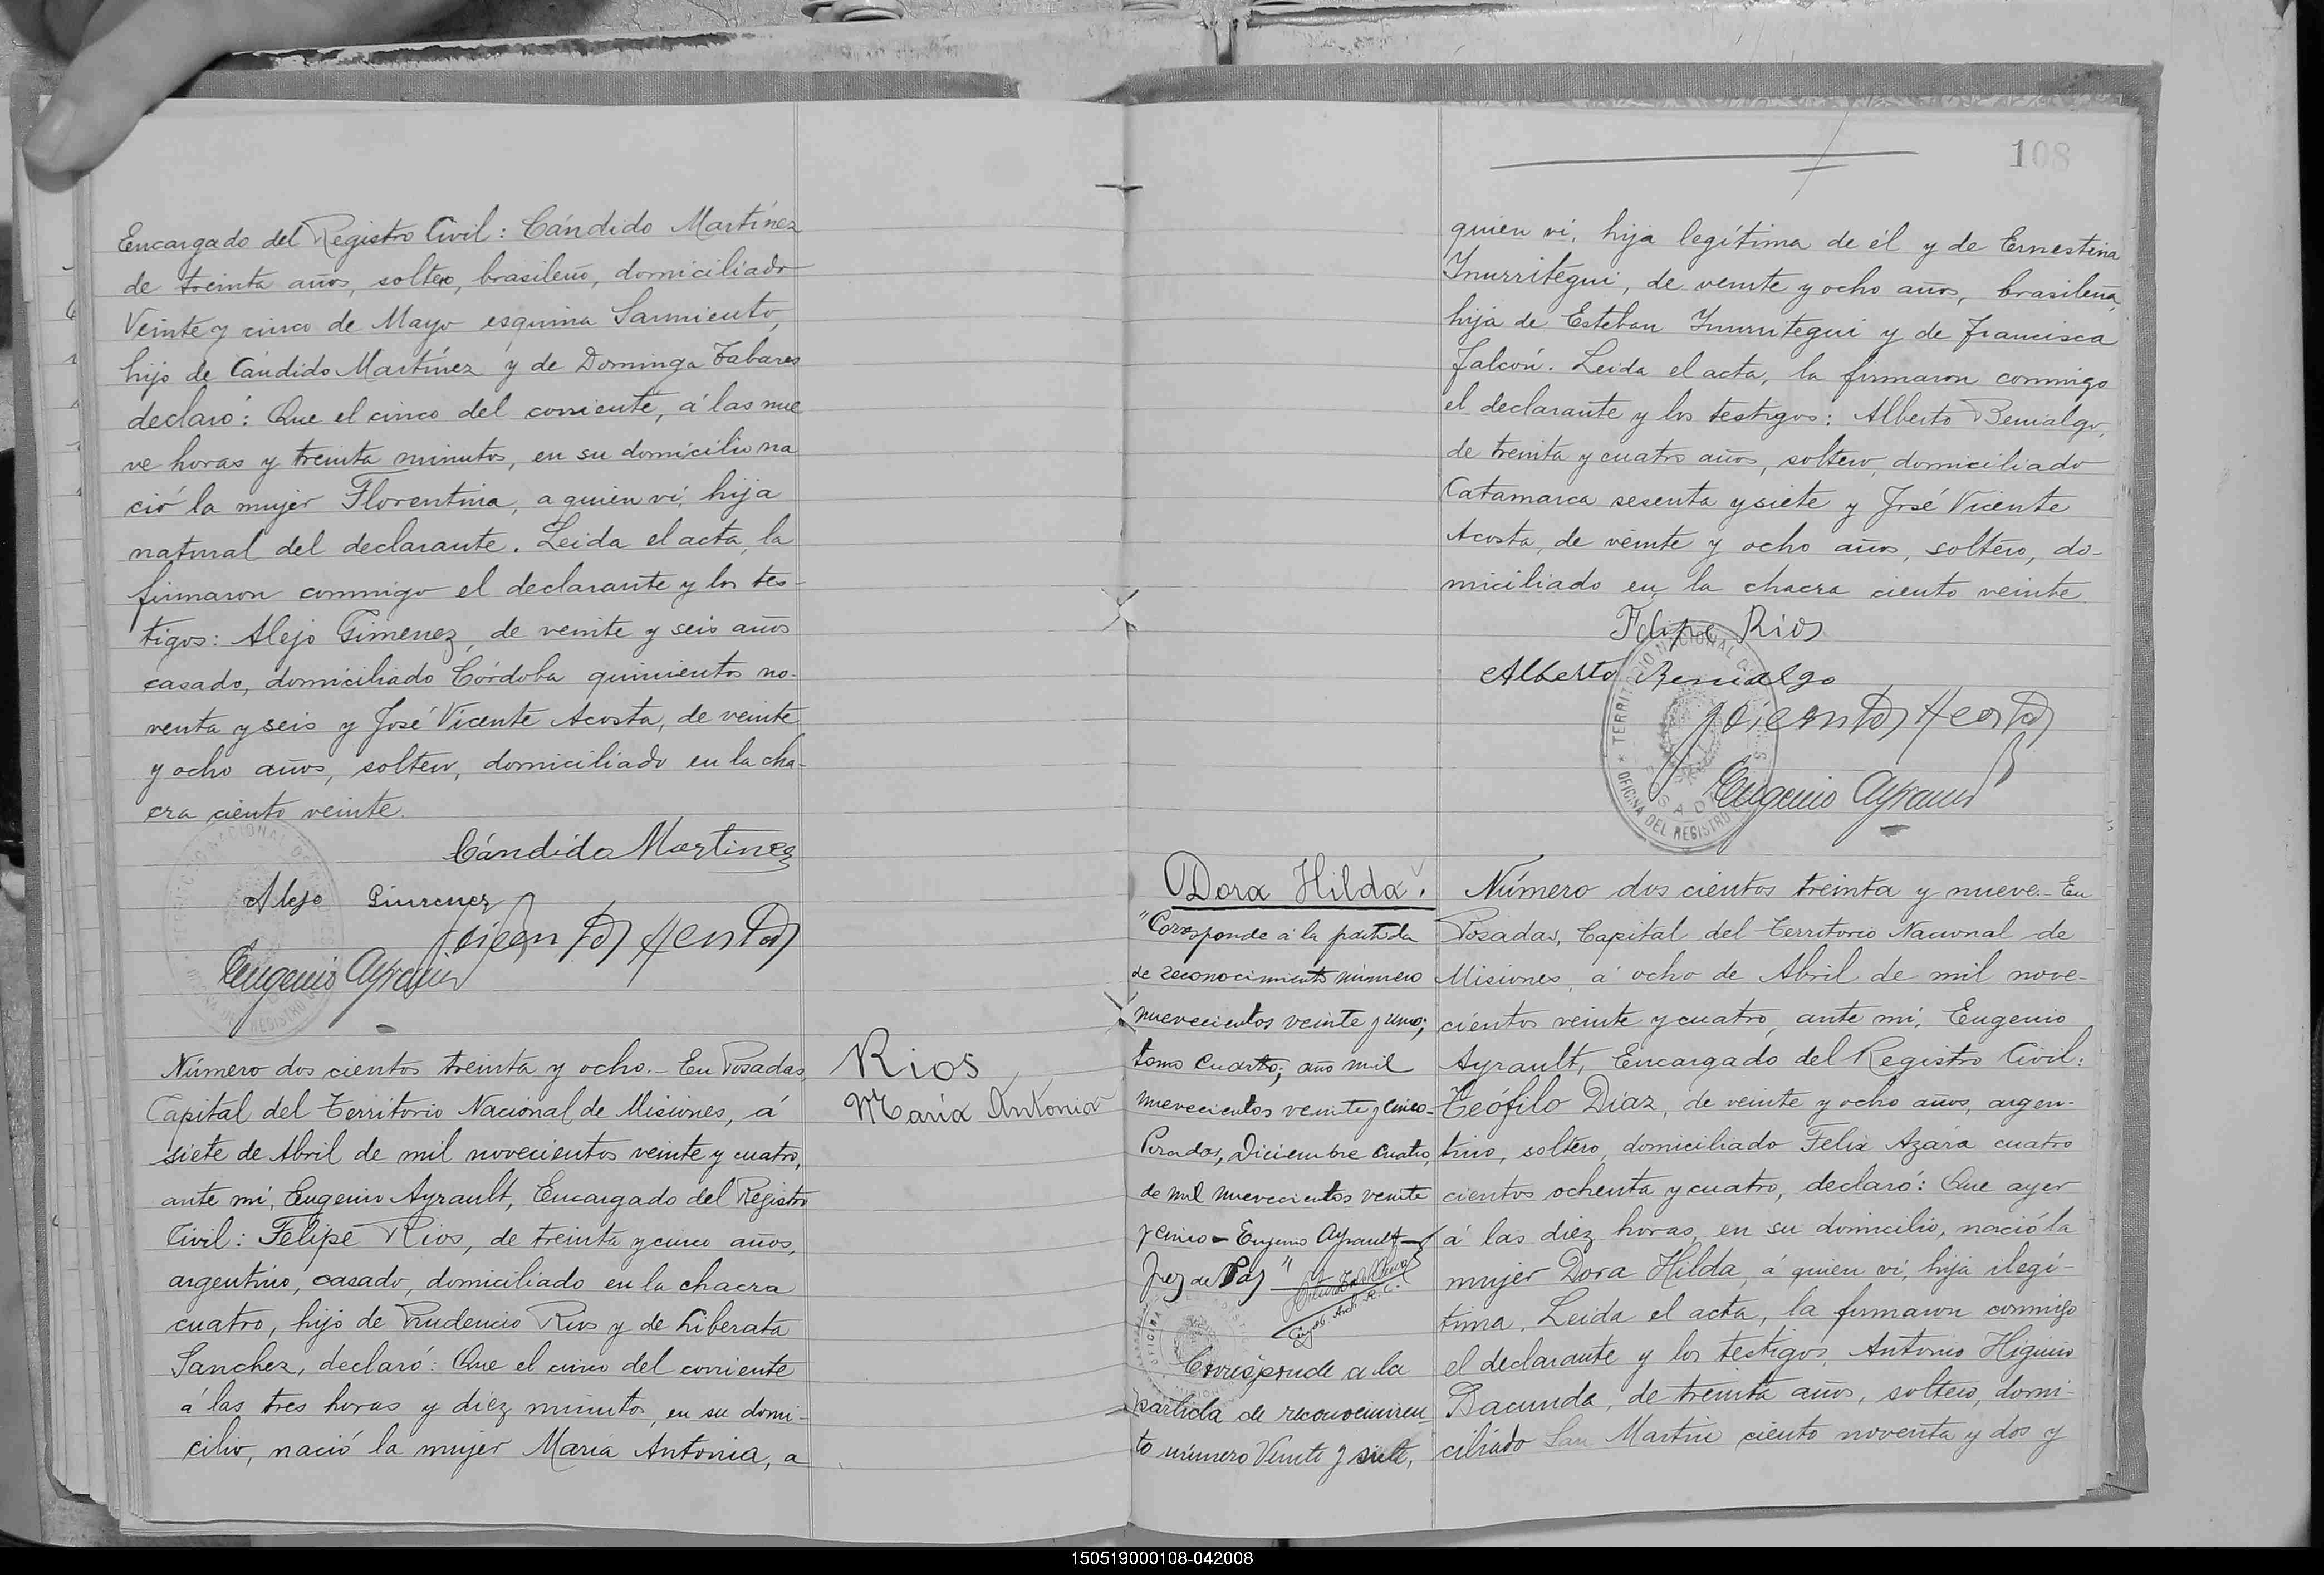 Encargado del Registro Civil: Cándido Martínez
de treinta años, soltero, brasileño, domiciliado
Veinte y cinco de Mayo esquina Sarmiento,
hijo de Cándido Martínez y de Dominga Tabares
declaró: Que el cinco del corriente, á las nue
ve horas y treinta minutos, en su domicilio na
ció la mujer Florentina, a quien vi, hija
natural del declarante. Leida el acta, la
firmaron conmigo el declarante y los tes-
tigos: Alejo Gimenez, de veinte y seis años
casado, domiciliado Córdoba quinientos no-
venta y seis y José Vicente Acosta, de veinte
y ocho años, soltero, domiciliado en la cha-
cra ciento veinte.
Cándido Martinez
Alejo Gimenez
JVicente Acosta
Eugenio Ayrault
Número dos cientos treinta y ocho.- En Posadas,
Capital del Territorio Nacional de Misiones, á
siete de Abril de mil novecientos veinte y cuatro,
ante mí, Eugenio Ayrault, Encargado del Registro
Civil: Felipe Rios, de treinta y cinco años,
argentino, casado, domiciliado en la chacra
cuatro, hijo de Prudencio Rios y de Liberata
Sanchez, declaró: Que el cinco del corriente
á las tres horas y diez minutos, en su domi-
cilio, nació la mujer María Antonia, a
Rios
María Antonia
108
quien vi, hija legítima de él y de Ernestina
Inurritegui, de veinte y ocho años, brasileña,
hija de Esteban Inurritegui y de Francisca
Falcón. Leida el acta, la firmaron conmigo
el declarante y los testigos: Alberto Benialgo,
de treinta y cuatro años, soltero, domiciliado
Catamarca sesenta y siete y José Vicente
Acosta, de veinte y ocho años, soltero, do-
miciliado en la chacra ciento veinte.
Felipe Rios
Alberto Benialgo
JVicente Acosta
Eugenio Ayrault
TERRITORIO NACIONAL DE MISIONES
POSADAS
OFICINA DEL REGISTRO
Dora Hilda.
"Corresponde á la partida
de reconocimiento número
nuevecientos veinte y uno;
tomo Cuarto; año mil
nuevecientos veinte y cinco-
Posadas, Diciembre Cuatro,
de mil nuevecientos veinte
y cinco - Eugenio Ayrault -
Juez de Paz"
Corresponde a la
partida de reconocimien
to número Veinte y siete,
Número dos cientos treinta y nueve.- En
Posadas, Capital del Territorio Nacional de
Misiones, á ocho de Abril de mil nove-
cientos veinte y cuatro, ante mí, Eugenio
Ayrault, Encargado del Registro Civil:
Teófilo Diaz, de veinte y ocho años, argen-
tino, soltero, domiciliado Felix Azara cuatro
cientos ochenta y cuatro, declaró: Que ayer
á las diez horas, en su domicilio, nació la
mujer Dora Hilda, á quien vi, hija ilegí-
tima. Leida el acta, la firmaron conmigo
el declarante y los testigos, Antonio Higinio
Dacunda, de treinta años, soltero, domi-
ciliado San Martin ciento noventa y dos y
150519000108-042008